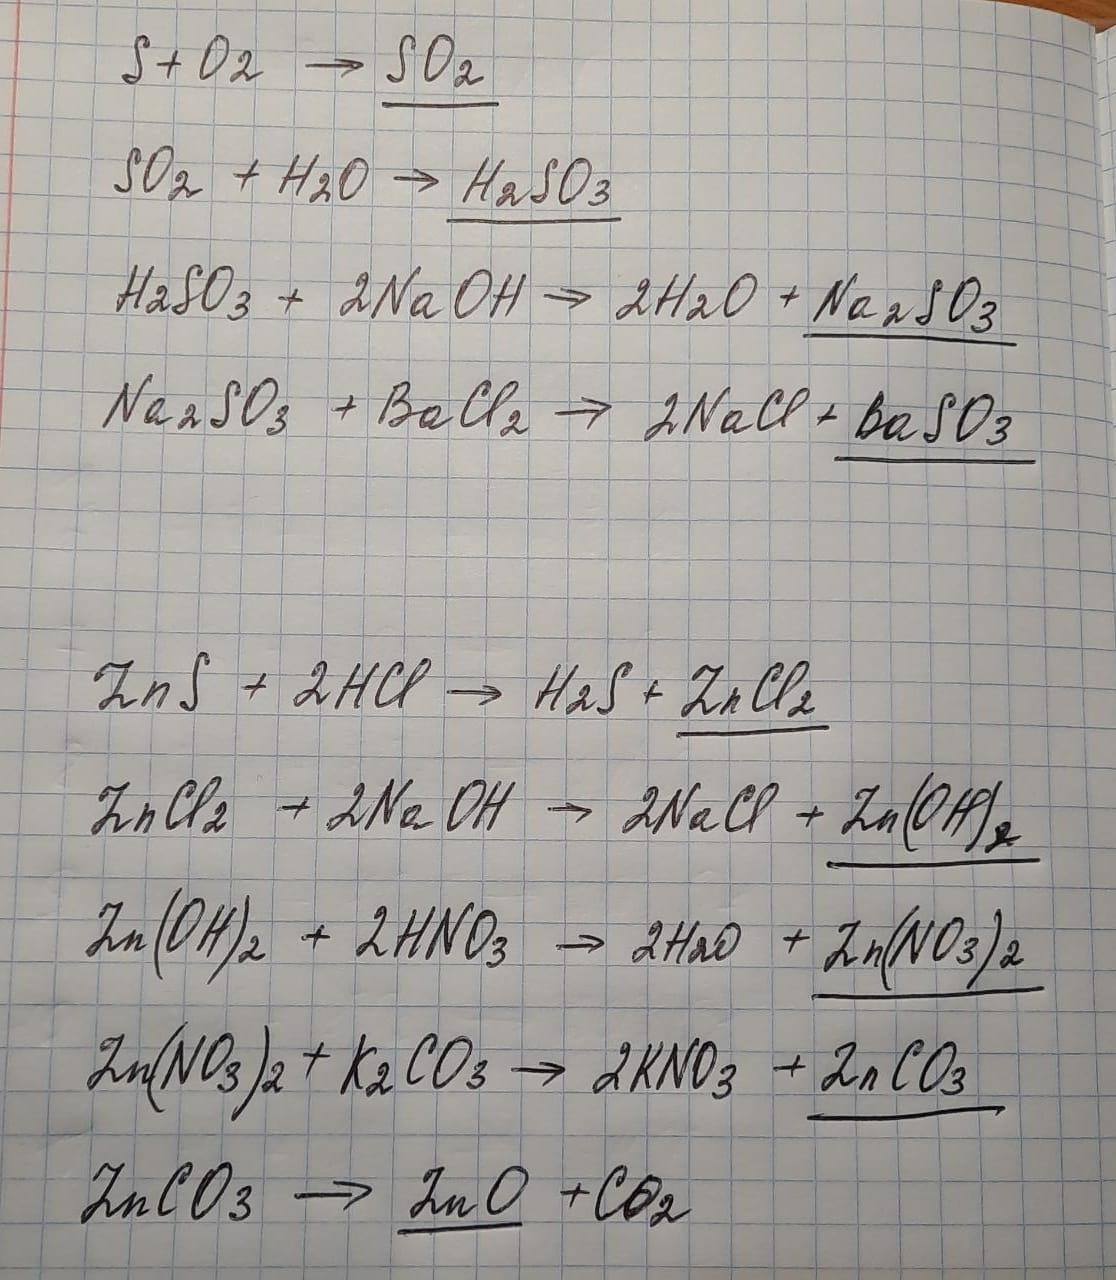 S + O2 → SO2
SO2 + H2O → H2SO3
H2SO3 + 2NaOH → 2H2O + Na2SO3
Na2SO3 + BaCl2 → 2NaCl + BaSO3
ZnS + 2HCl → H2S + ZnCl2
ZnCl2 + 2NaOH → 2NaCl + Zn(OH)2
Zn(OH)2 + 2HNO3 → 2H2O + Zn(NO3)2
Zn(NO3)2 + K2CO3 → 2KNO3 + ZnCO3
ZnCO3 → ZnO + CO2